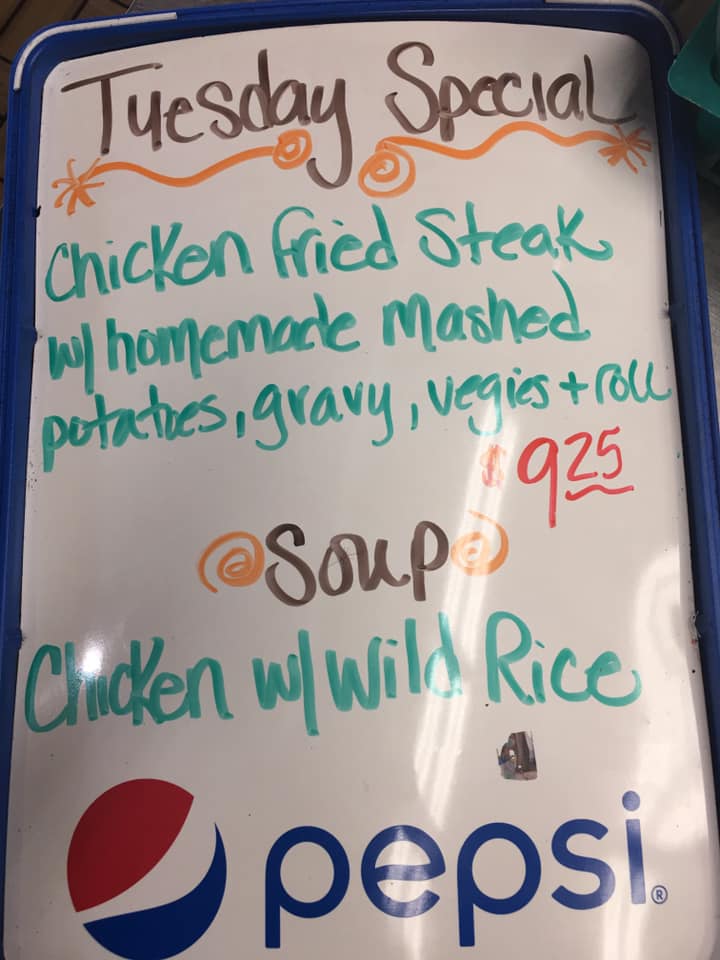 Tuesday Special
Chicken fried Steak
w/ homemade mashed
potatoes, gravy, vegies + roll
$925
Soup
Chicken w/ Wild Rice
pepsi®